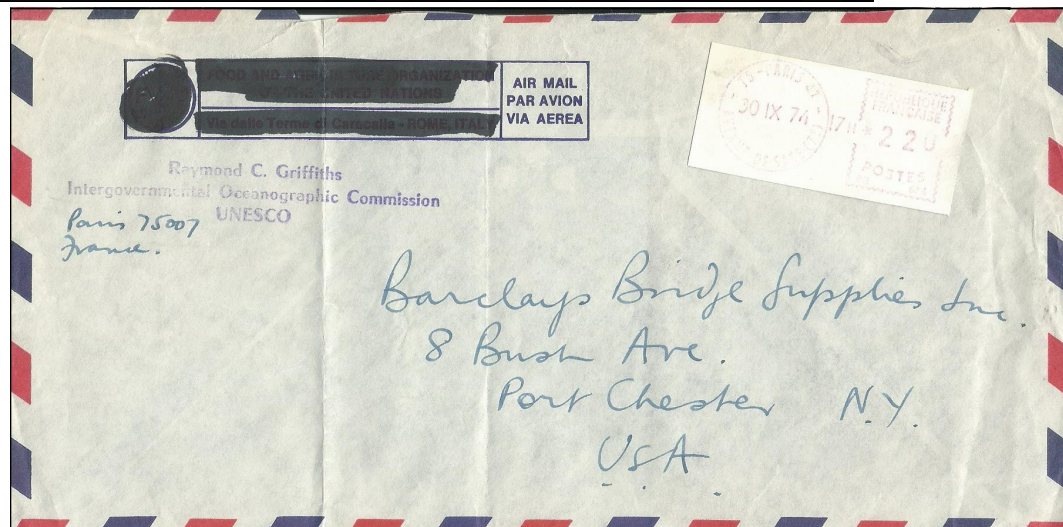 FOOD AND AGRICULTURE ORGANIZATION
OF THE UNITED NATIONS
Via delle Terme di Caracalla - ROME, ITALY
AIR MAIL
PAR AVION
VIA AEREA
30 IX 74
17H
* 2 2 0
REPUBLIQUE
FRANCAISE
POSTES
Raymond C. Griffiths
Intergovernmental Oceanographic Commission
UNESCO
Paris 75007
France.
Barclays Bridge Supplies Inc.
8 Bush Ave.
Port Chester N.Y.
USA